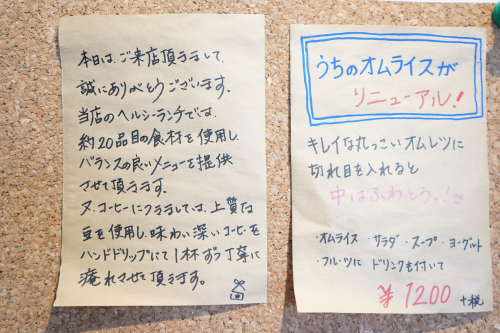 本日は、ご来店頂きまして、
誠にありがとうございます。
当店のヘルシーランチでは、
約20品目の食材を使用し、
バランスの良いメニューを提供
させて頂きます。
又、コーヒーにつきましては、上質な
豆を使用し、味わい深いコーヒーを
ハンドドリップにて1杯ずつ丁寧に
淹れさせて頂きます。
うちのオムライスが
リニューアル!
キレイな丸っこいオムレツに
切れ目を入れると
中はふわとろっ!!
・オムライス ・サラダ ・スープ ・ヨーグルト
・フルーツに ドリンクも付いて
¥1200
+税